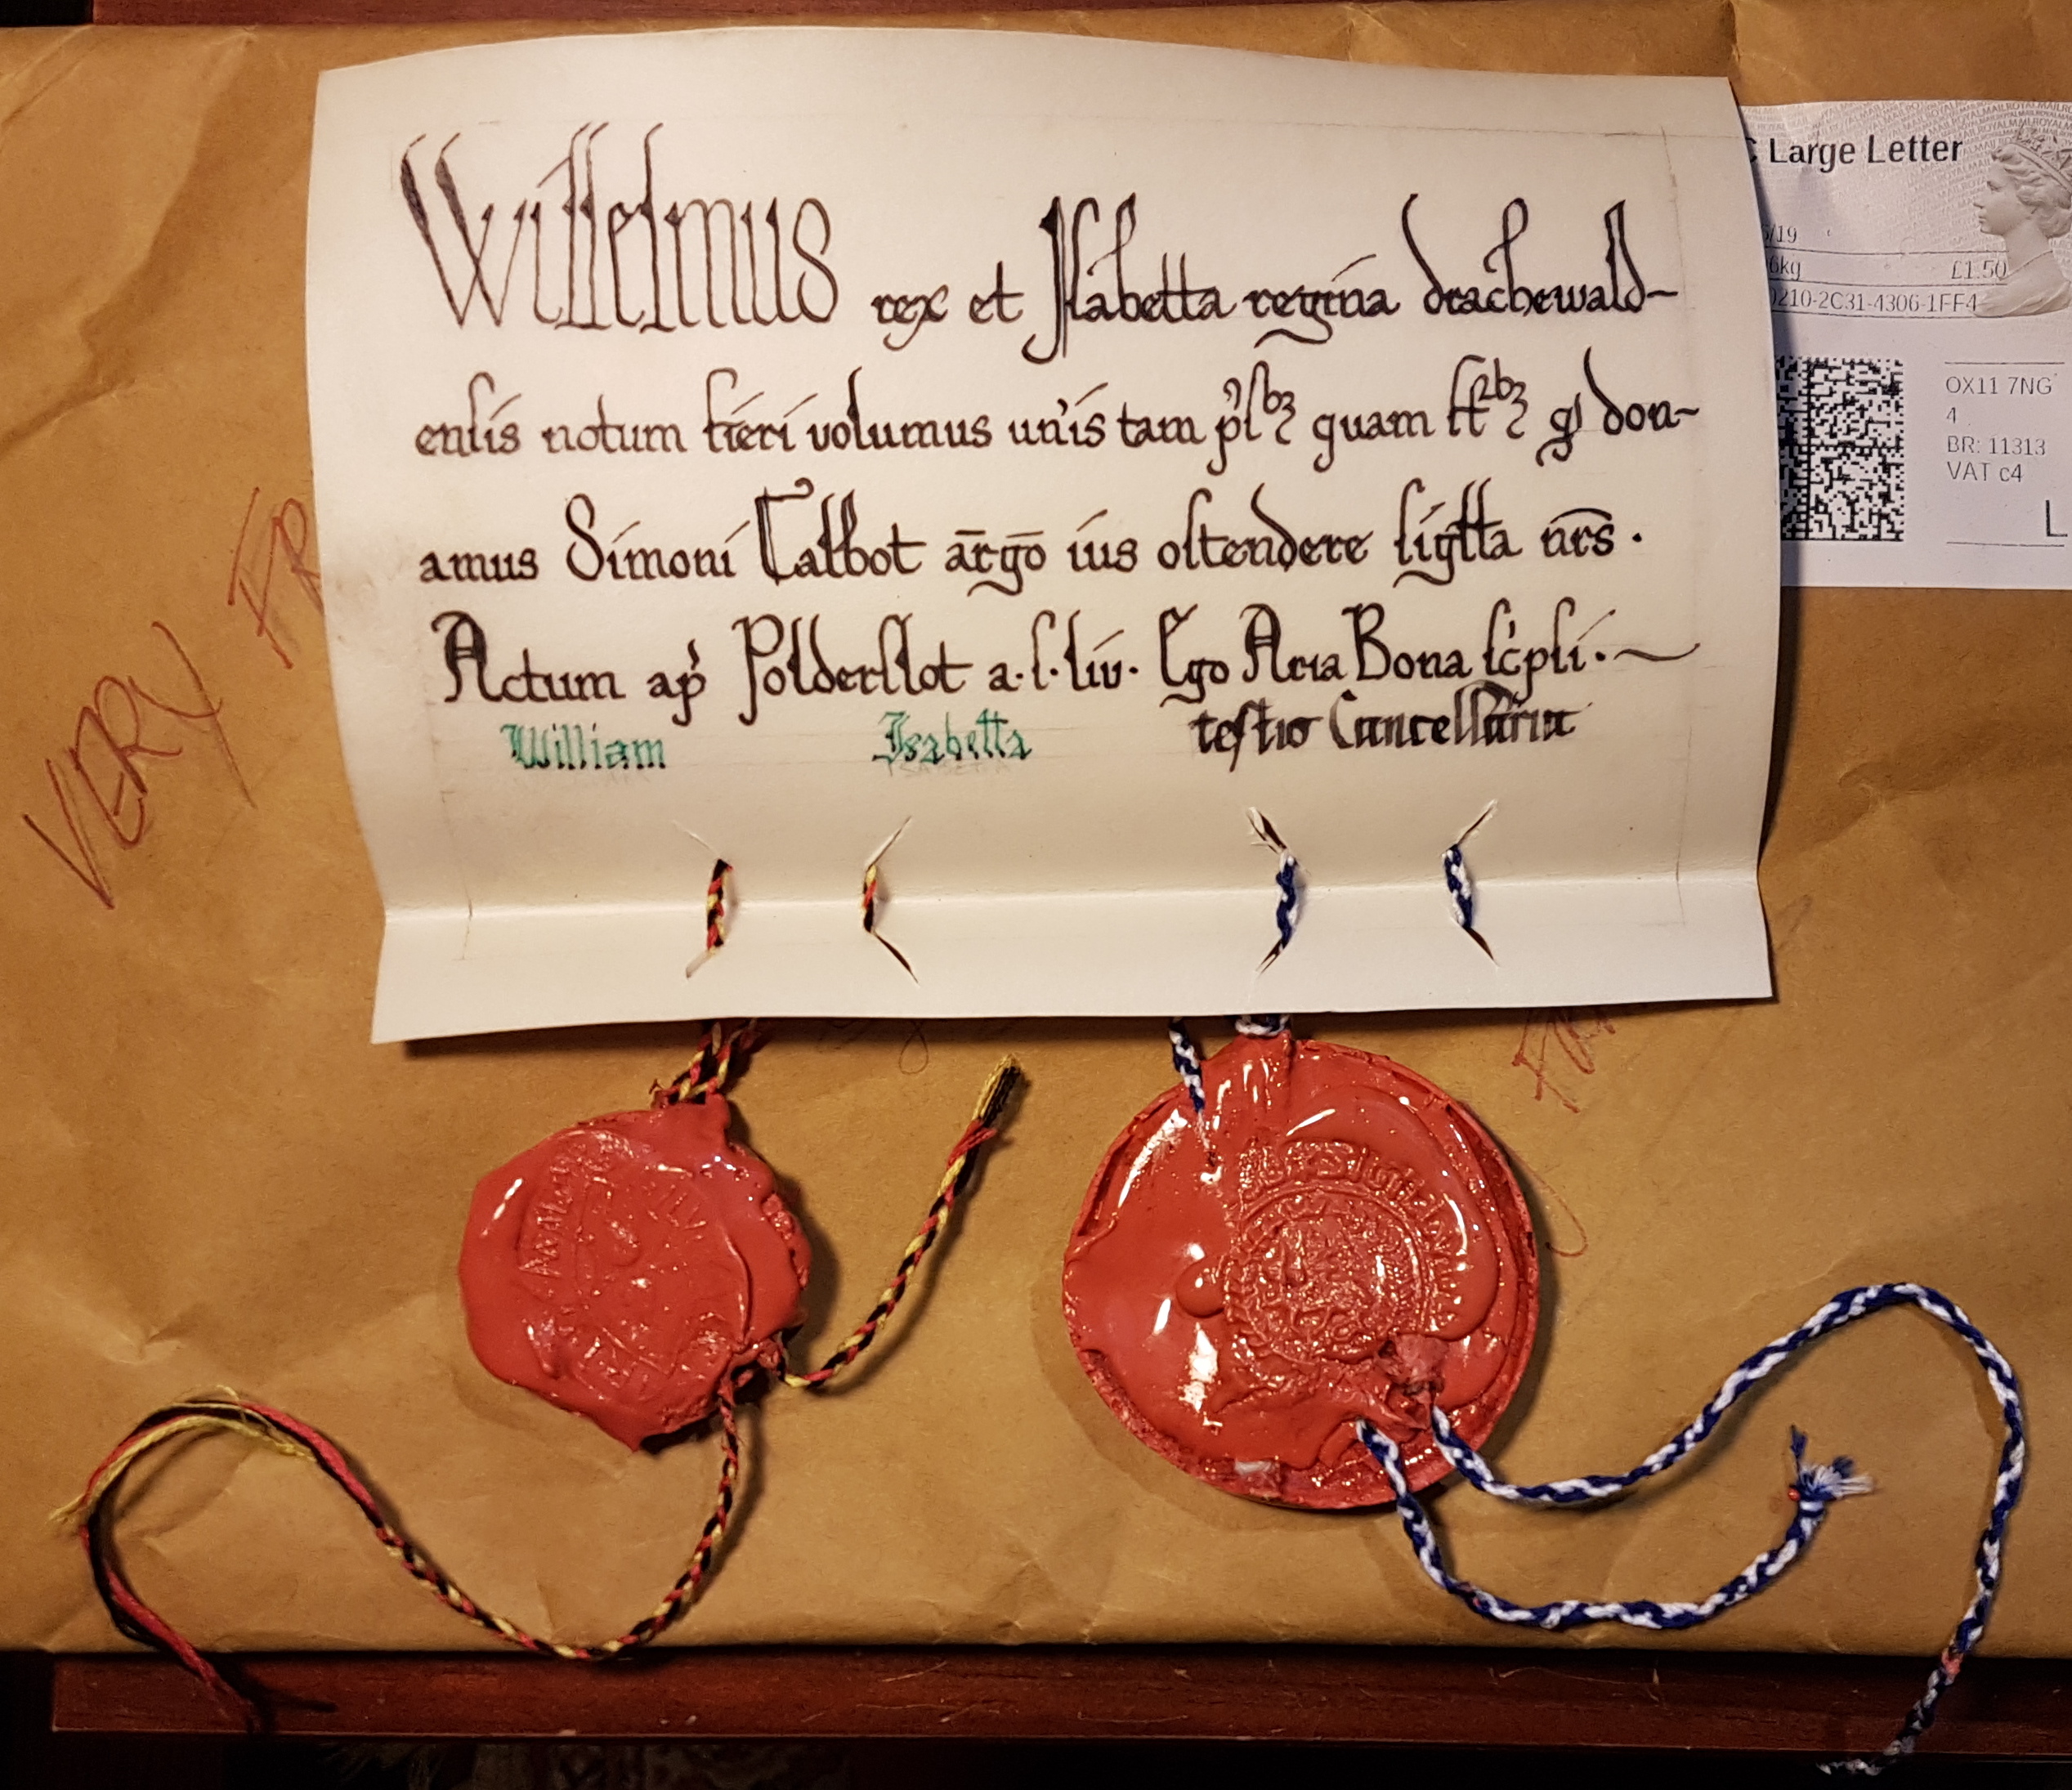 Willelmus rex et Isabetta regina drachewald~
ensis notum fieri volumus un'is tam p'sbꝫ quam ft2bꝫ ꝙ don~
amus Simoni Talbot ārgō ius ostendere sigilla nrs .
Actum ap' Polderslot a.s.liv. Ego Aria Bona sc'psi. ~
William Isabetta testio Cancellaria
VERY FR
Large Letter
/19
6kg £1.50
0210-2C31-4306-1FF4
OX11 7NG
4
BR: 11313
VAT c4
L